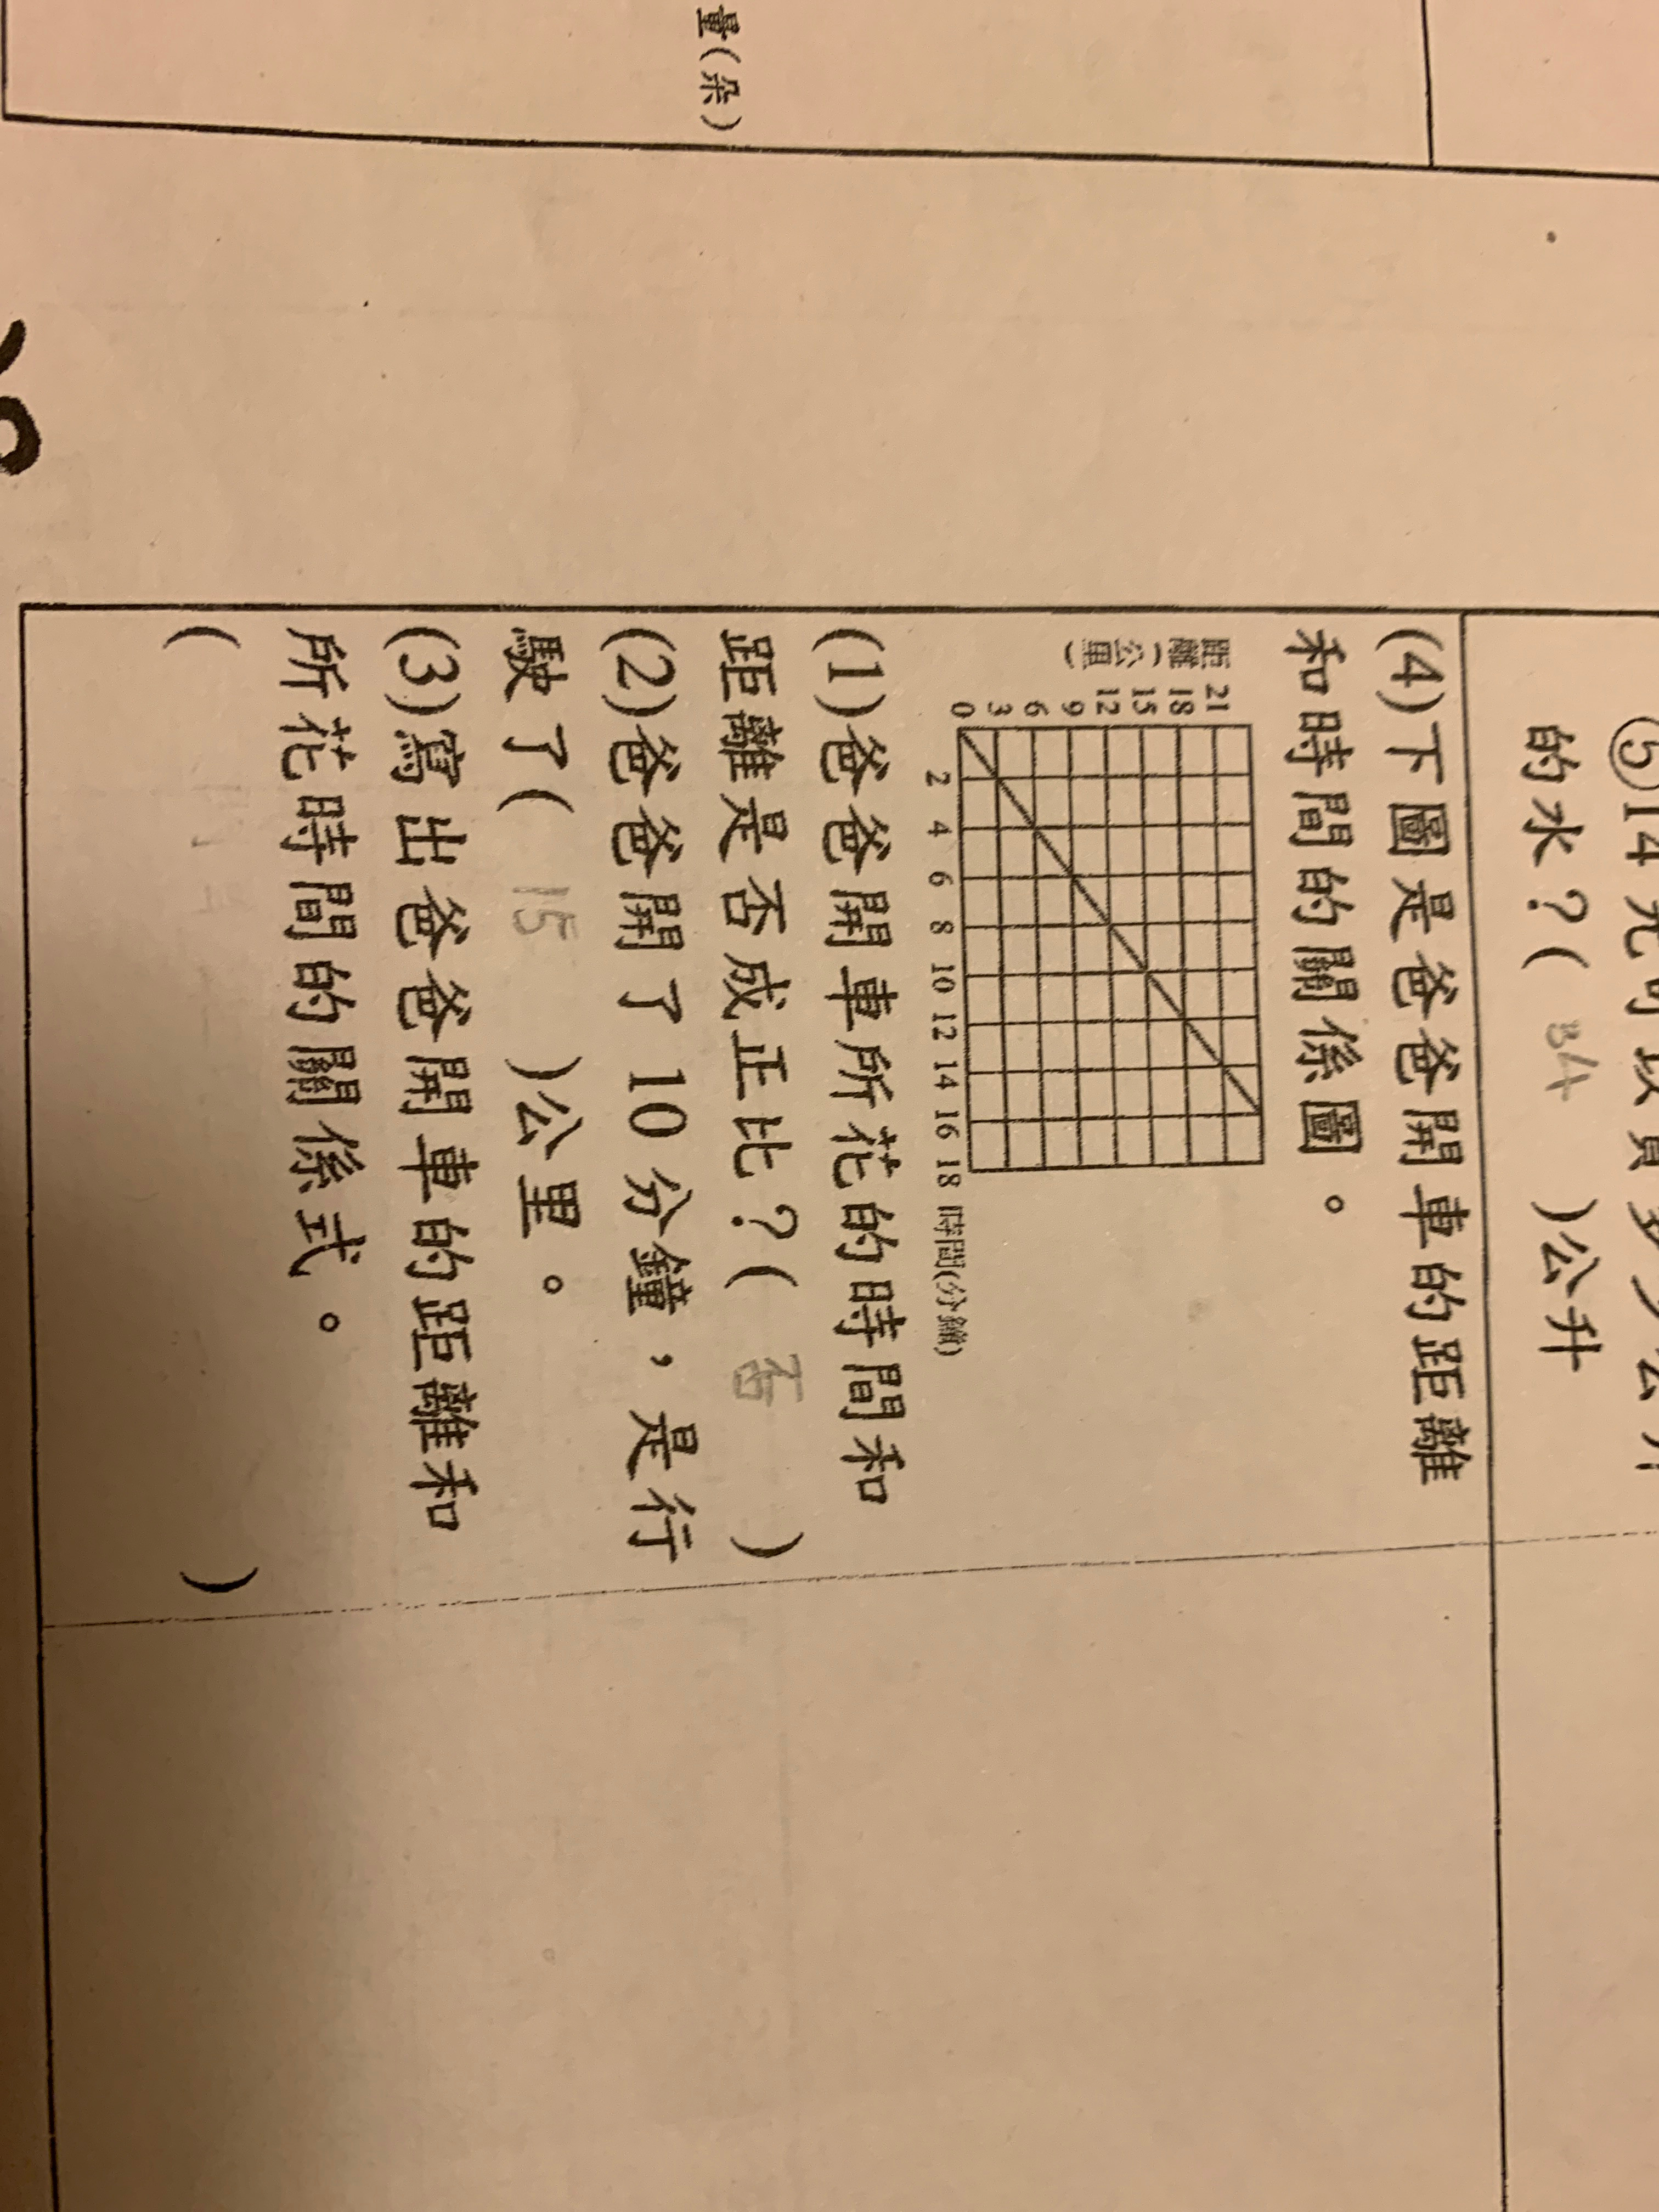 量(朵)
的水？( 34 )公升
(4)下圖是爸爸開車的距離
和時間的關係圖。
距離(公里)
21
18
15
12
9
6
3
0
2 4 6 8 10 12 14 16 18 時間(分鐘)
(1)爸爸開車所花的時間和
距離是否成正比？( 否 )
(2)爸爸開了 10 分鐘，是行
駛了( 15 )公里。
(3)寫出爸爸開車的距離和
所花時間的關係式。
( )